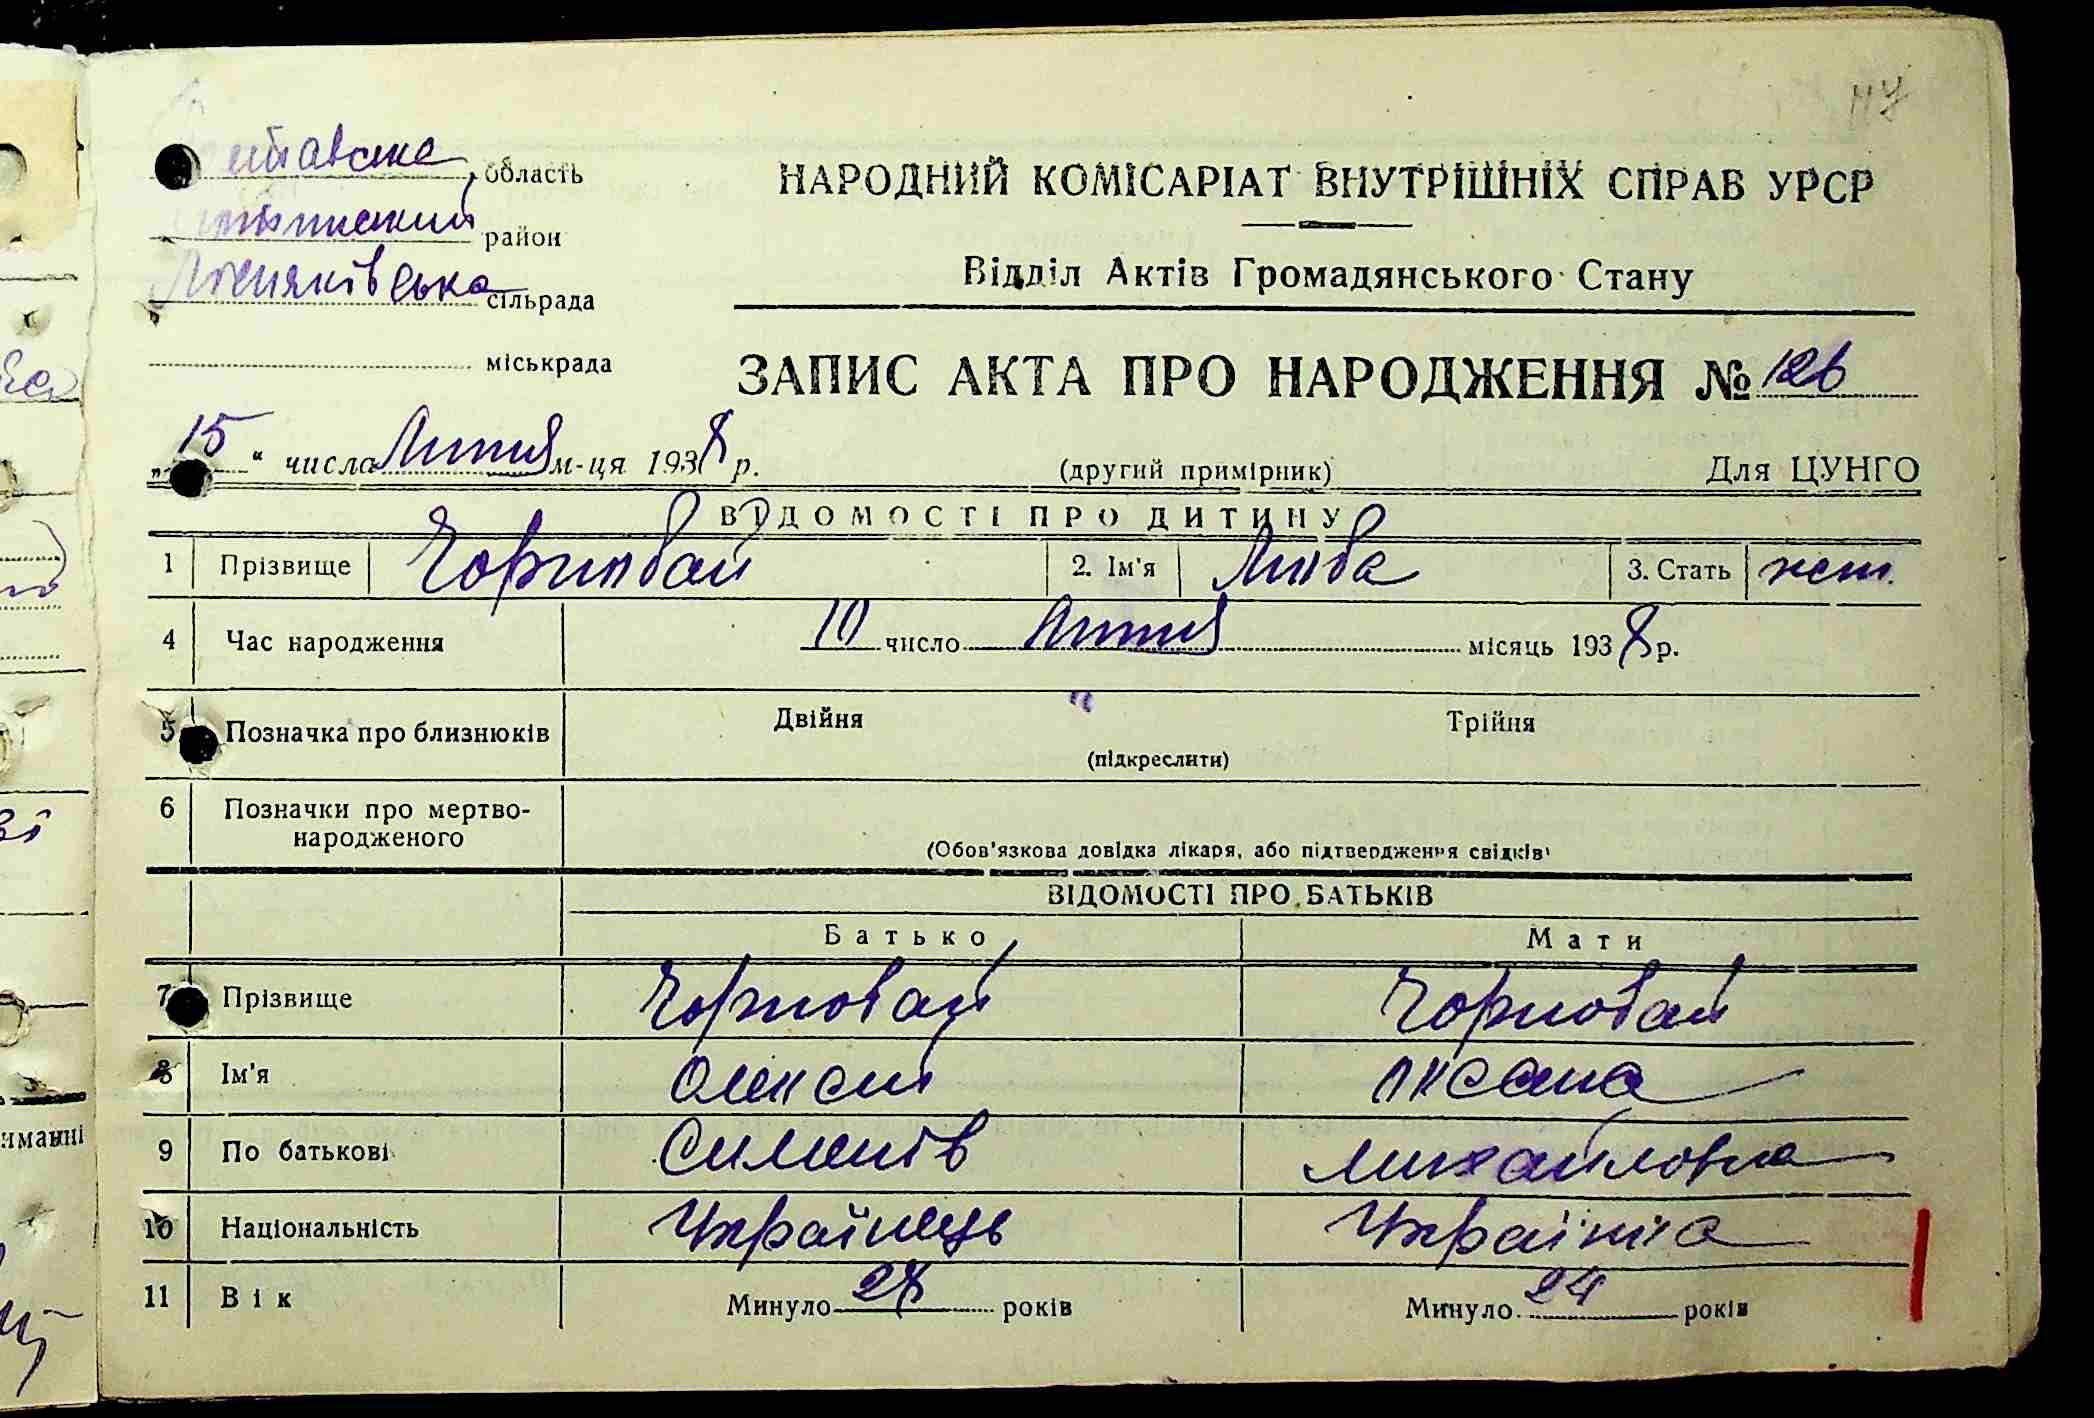 117
область
район
сільрада
міськрада
НАРОДНИЙ КОМІСАРІАТ ВНУТРІШНІХ СПРАВ УРСР
Відділ Актів Громадянського Стану
ЗАПИС АКТА ПРО НАРОДЖЕННЯ № 126
„15“ числа Лютня м-ця 1938 р.
(другий примірник)
Для ЦУНГО
ВІДОМОСТІ ПРО ДИТИНУ
1 Прізвище Чорновай 2. Ім'я Люба 3. Стать жін.
4 Час народження 10 число Лютня місяць 1938 р.
5 Позначка про близнюків Двійня " Трійня
(підкреслити)
6 Позначки про мертво-
народженого
(Обов'язкова довідка лікаря, або підтвердження свідків)
ВІДОМОСТІ ПРО БАТЬКІВ
Батько Мати
7 Прізвище Чорновай Чорновай
8 Ім'я Олексій Оксана
9 По батькові Семенів Михайловна
10 Національність Українець Українка
11 Вік Минуло 28 років Минуло 24 років
иманні